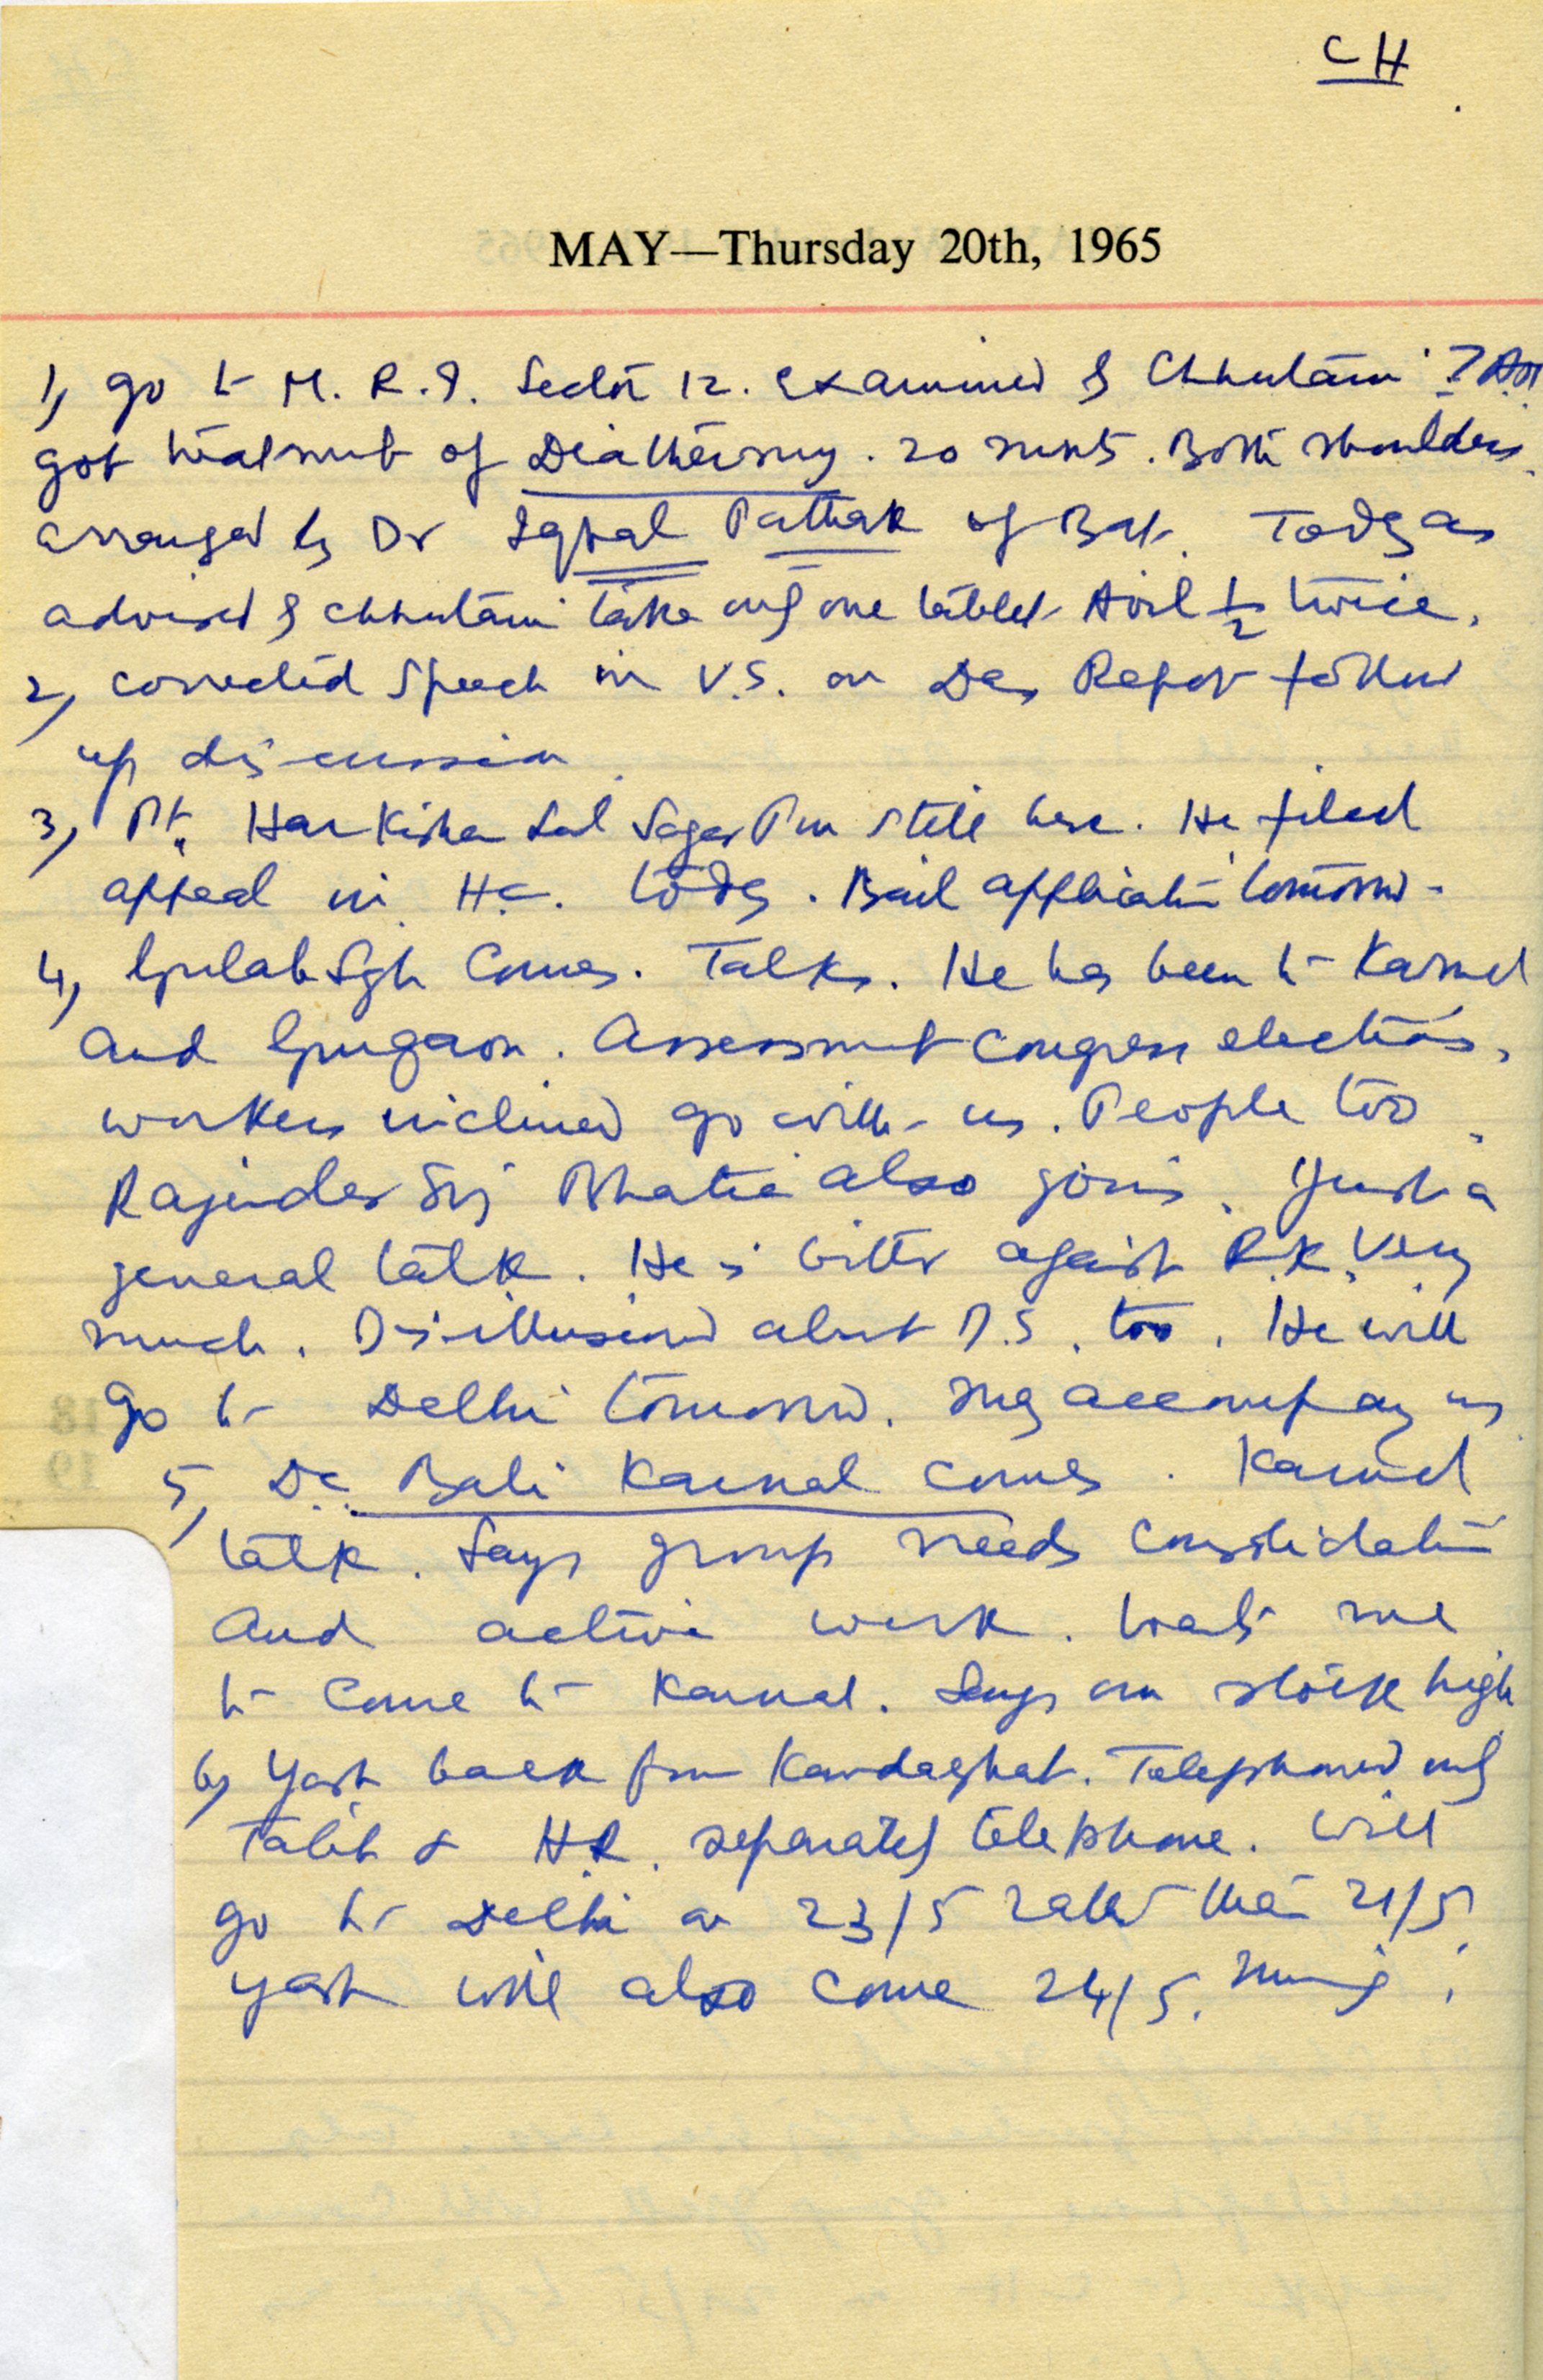 CH
MAY—Thursday 20th, 1965
1, go to M. R. I. Sector 12. Examined by Chhutani
got treatment of Diathermy. 20 minutes. Both shoulders.
arranged by Dr Iqbal Pathak of Today as
advised by Chhutani take only one tablet Avil ½ twice.
2, corrected Speech in V.S. on Das Report follow
up discussion.
3, Pt. Har Kishan Lal still here. He filed
appeal in H.C. today. Bail application tomorrow.
4, Gulab Sgh Comes. Talks. He has been to Karnal
and Gurgaon. Assessment congress elections,
workers inclined go with us. People too.
Rajinder Bhatia also joins. Just a
general talk. He is bitter against R.K. Very
much. Disillusioned about D.S. too. He will
go to Delhi tomorrow. May accompany us
5, Bali Karnal comes. Karnal
talk. Says group needs consolidation
and active work. Wants me
to come to Karnal. Says our stock high
6, Yash back from Kandaghat. Telephoned only
Talib & H.R. separately telephone. Will
go to Delhi on 23/5 rather than 21/5.
Yash will also come 24/5. morning.